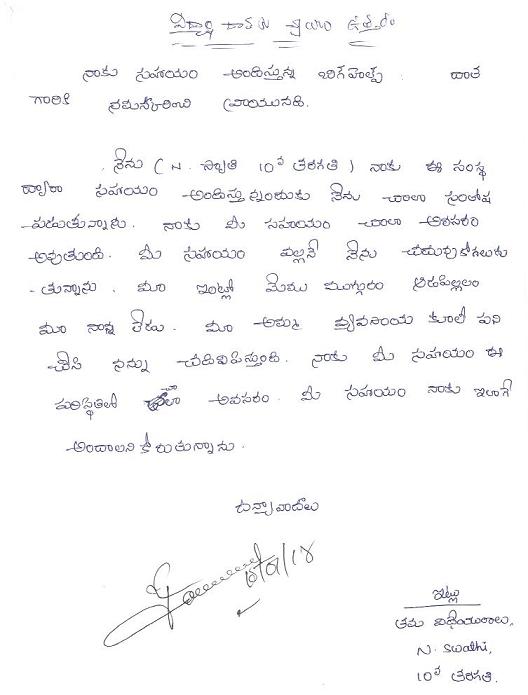 విద్యార్థి దాతకు వ్రాయు ఉత్తరం
నాకు సహాయం అందిస్తున్న దాత
గారికి నమస్కరించి వ్రాయునది.
నేను (N. స్వాతి 10వ తరగతి) నాకు ఈ సంస్థ
ద్వారా సహాయం అందిస్తున్నందుకు నేను చాలా సంతోష
పడుతున్నాను. నాకు మీ సహాయం చాలా అవసరం
అవుతుంది. మీ సహాయం వల్లనే నేను చదువుకోగలుగు
తున్నాను. మా ఇంట్లో మేము ముగ్గురం ఆడపిల్లలం
మా నాన్న లేడు. మా అమ్మ వ్యవసాయ కూలీ పని
చేసి నన్ను చదివిపిస్తుంది. నాకు మీ సహాయం ఈ
పరిస్థితిలో చాలా అవసరం. మీ సహయం నాకు ఇలాగే
అందాలని కోరుతున్నాను.
ధన్యావాదాలు
ఇట్లు
తమ విధేయురాలు,
N. Swathi,
10వ తరగతి.